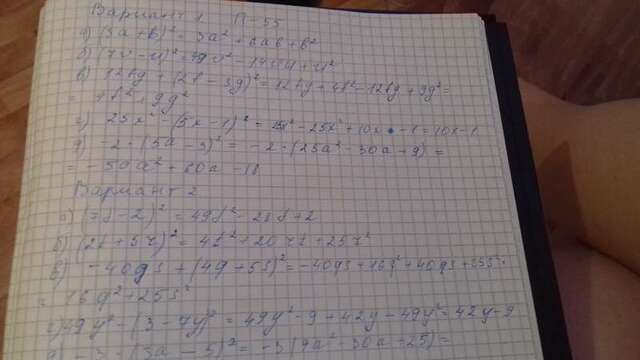 Вариант 1 П-55
а) (3a+b)² = 3a² + 6ab + b²
б) (7v-u)² = 49v² - 14vu + u²
в) 12fg + (2f-3g)² = 12fg + 4f² - 12fg + 9g² =
= 4f² + 9g²
г) 25x² - (5x-1)² = 25x² - 25x² + 10x - 1 = 10x-1
д) -2·(5a-3)² = -2·(25a²-30a+9) =
= -50a² + 60a - 18
Вариант 2
а) (7f-2)² = 49f² - 28f + 2
б) (2t+5r)² = 4t² + 20rt + 25r²
в) -40gs + (4g+5s)² = -40gs + 16g² + 40gs + 25s²
= 16g² + 25s²
г) 49y² - (3-7y)² = 49y² - 9 + 42y - 49y² = 42y-9
д) -3·(3a-5)² = -3(9a²-30a+25) =